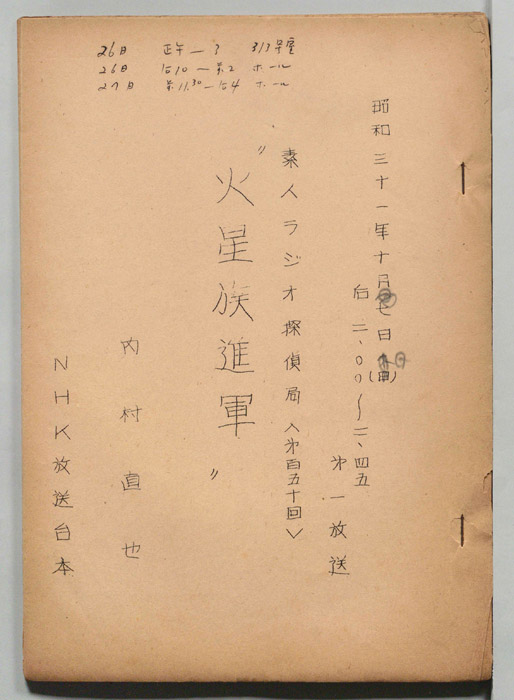 26日 正午—3 313号室
26日 后10—前2 ホール
27日 前11.30—后4 ホール
昭和三十一年十月 七日
后 二、〇〇〜二、四五
第一放送
素人ラジオ探偵局〈第百五十回〉
“火星族進軍”
内村直也
NHK放送台本